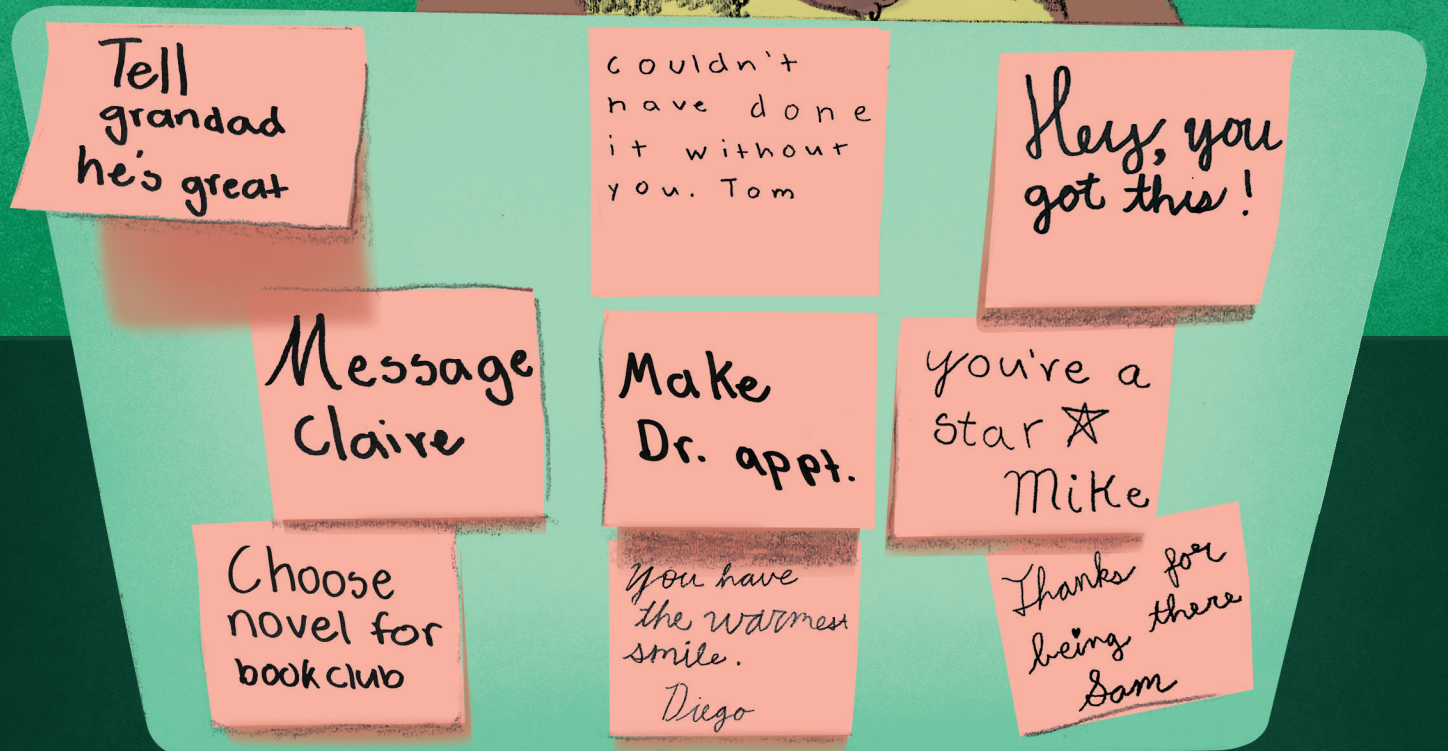 Tell
grandad
he's great
couldn't
have done
it without
you. Tom
Hey, you
got this!
Message
Claire
Make
Dr. appt.
you're a
star ☆
Mike
Choose
novel for
book club
You have
the warmest
smile.
Diego
Thanks for
being there
Sam